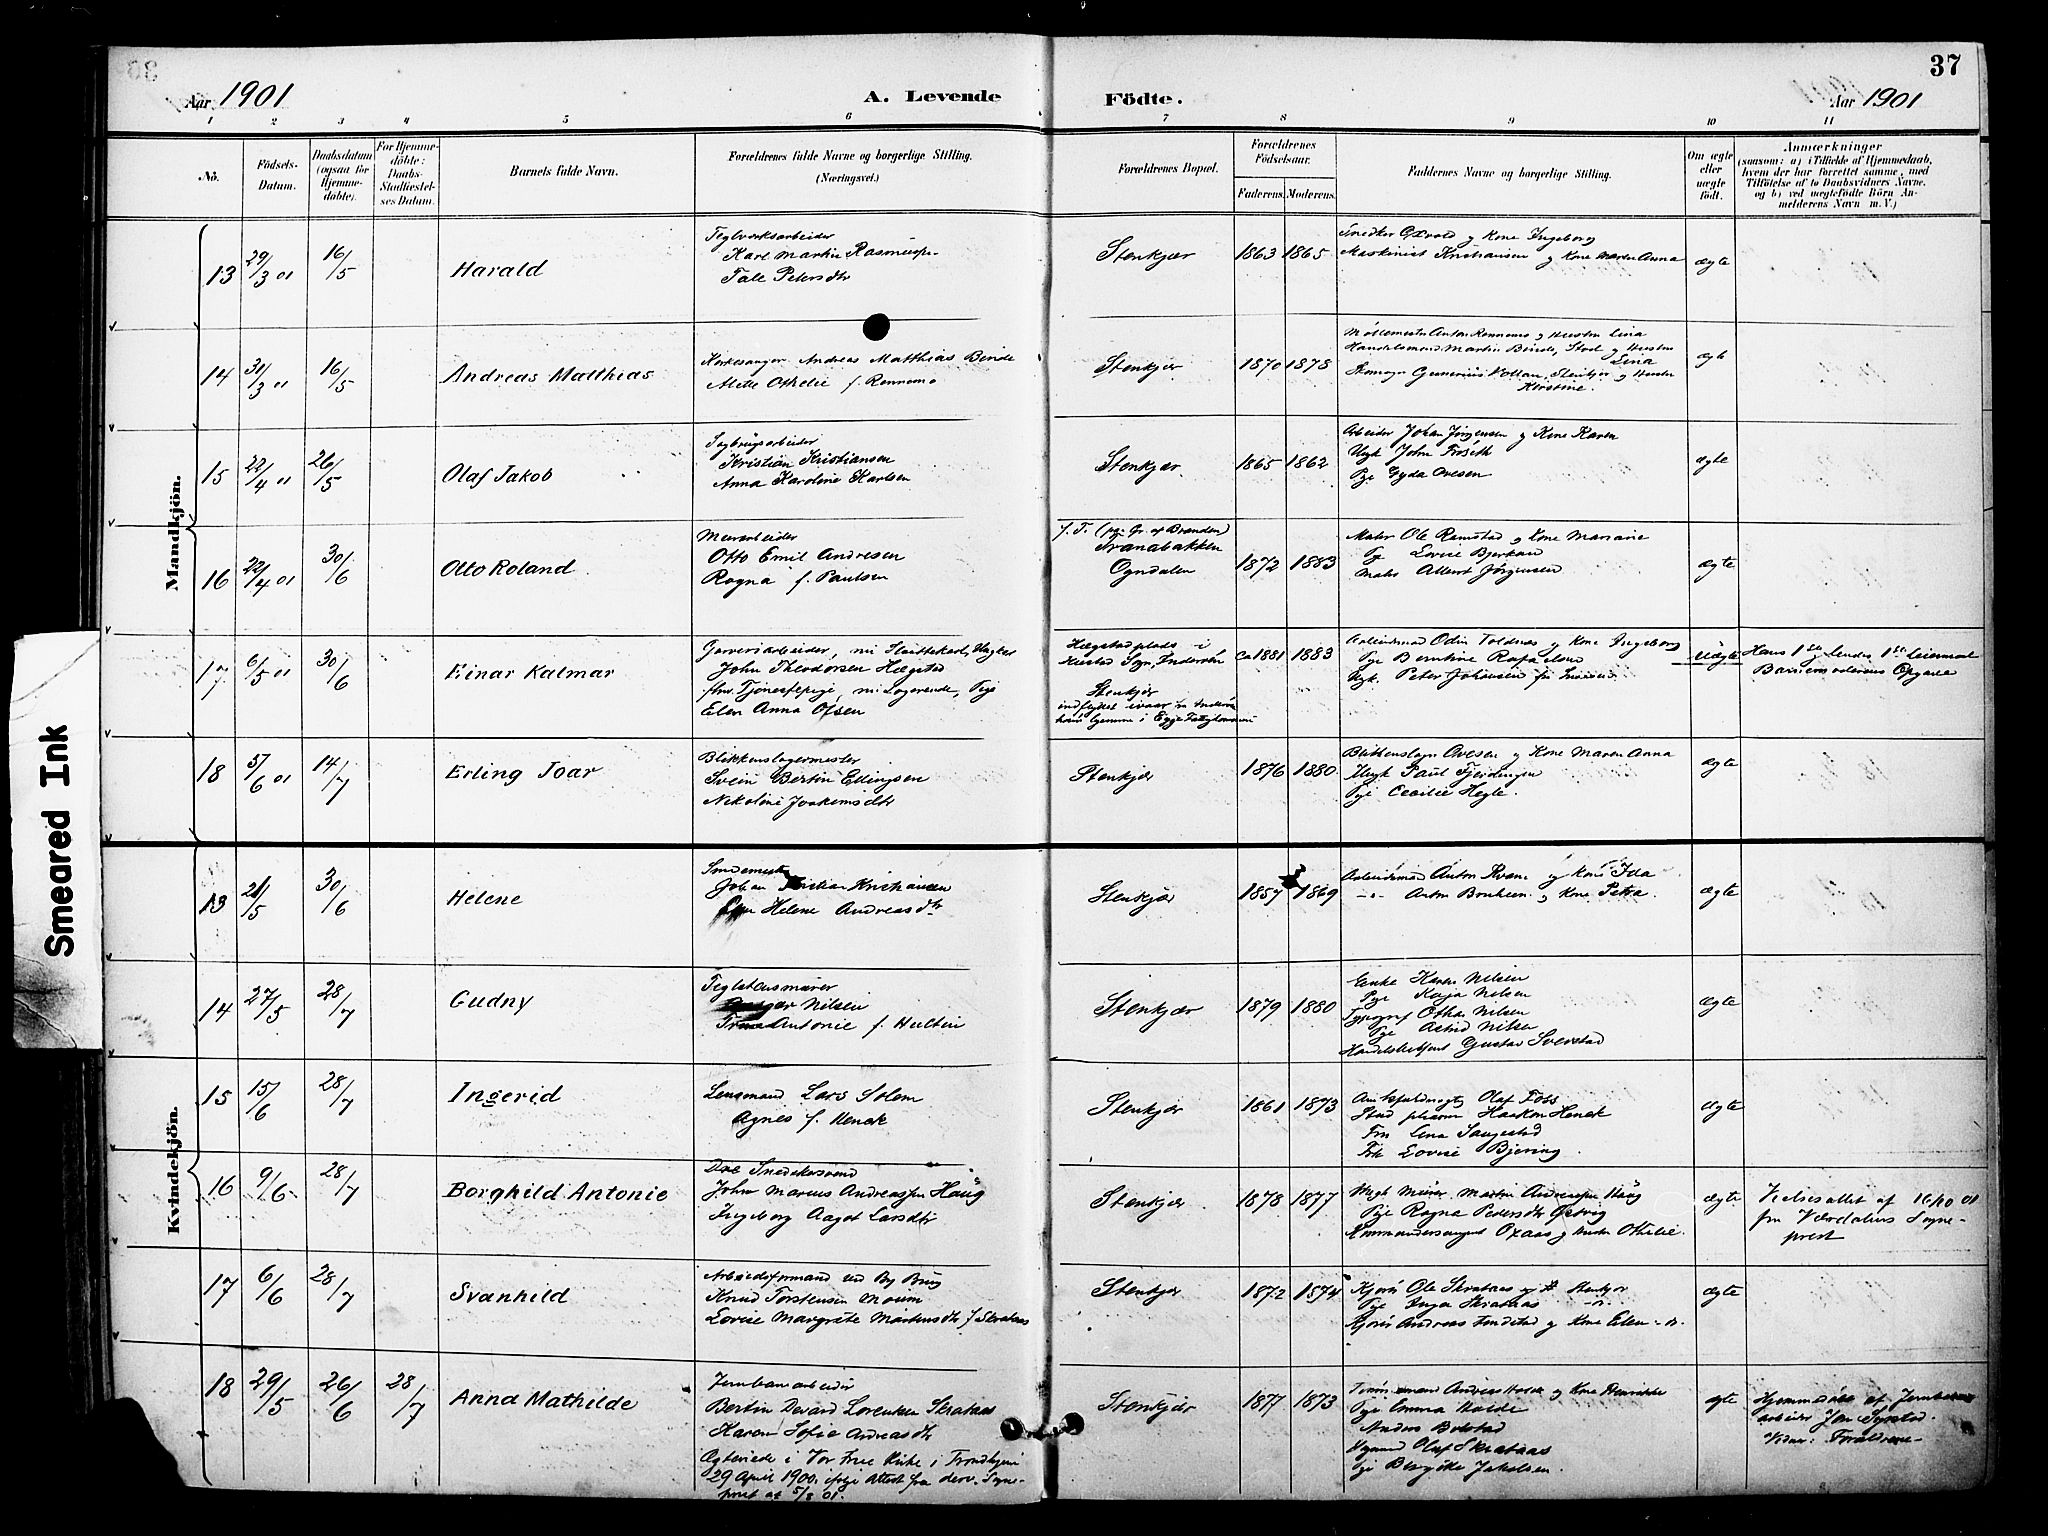 37
Aar 1901
A. Levende
Födte.
Aar 1901
1 2 3 4 5 6 7 8 9 10 11
No.
Födsels-
Datum.
Daabsdatum
(ogsaa for
Hjemme-
döbte).
For Hjemme-
döbte:
Daabs-
Stadfæstel-
ses Datum.
Barnets fulde Navn.
Forældrenes fulde Navne og borgerlige Stilling.
(Næringsvei.)
Forældrenes Bopæl.
Forældrenes
Födselsaar.
Faderens. Moderens.
Faddernes Navne og borgerlige Stilling.
Om ægte
eller
uægte
födt.
Anmærkninger
(saasom: a) i Tilfælde af Hjemmedaab,
hvem der har forrettet samme, med
Tilföielse af to Daabsvidners Navne,
og b) ved uægtefödte Börn An-
melderens Navn m. V.)
Mandkjön.
13 29/3 01 16/5 Harald
Teglværksarbeider
Karl Martin
Tale Petersdtr
Stenkjær 1863 1865
Snedker og Kone Ingeborg
Maskinist Kristiansen og Kone Maren Anna
ægte
14 31/3 01 16/5 Andreas Matthias
Kirkesanger Andreas Matthias Binde
Mette Othelie f. Rennemo
Stenkjær 1870 1878
Møllemester Anton Rennemo og Hustru Lina
Handelsmand Martin Binde, Stod og Hustru
Lina
Gunerius Vollan, Stenkjær og Hustru
Kirstine.
ægte
15 22/4 01 26/5 Olaf Jakob
Sagbrugsarbeider
Kristian Kristiansen
Anna Karoline Karlsen
Stenkjær 1865 1862
Arbeider Johan Jørgensen og Kone Karen
Ungk John Frøseth
Pge Gyda Ovesen
ægte
16 22/4 01 30/6 Otto Roland
Murarbeider
Otto Emil Andresen
Ragna f. Paulsen
Svanabakken
Ogndalen
1872 1883
Maler Ole Remstad og Kone Marianne
Pge Lovise Bjerkan
Maler Albert Jørgensen
ægte
17 6/5 01 30/6 Einar Kalmar
Garveriarbeider, nu Slagtekarl, Ungkar
John Theodorsen Hægstad
fhv. Tjenestepige, nu Logerende, Pige
Elen Anna Olsen
Hægstadplads i
Sogn, Inderøen
Stenkjær
ca 1881 1883
Arbeidsmand Odin Toldnæs og Kone Ingeborg
Pge Berntine Rafaelsen
Ungk. Peter Johansen fra
Uægte
Hans 1ste og hendes 1ste Leiermaal
Barnemoderens Opgave
18 5/6 01 14/7 Erling Joar
Blikkenslagermester
Svein Bertin Ellingsen
Nikoline Joakimsdtr
Stenkjær 1876 1880
Blikkenslager Ovesen og Kone Maren Anna
Ungk Paul
Pge Cecilie Hegle.
ægte
Kvindekjön.
13 21/5 30/6 Helene
Smedemester
Johan Kristian Kristiansen
Helene Andreasdtr
Stenkjær 1857 1869
Arbeidsmand Anton og Kone Ida
— " — Anton og Kone Petra
ægte
14 27/5 28/7 Gudny
Teglstensmurer
Nilsen
Antonie f. Hultin
Stenkjær 1879 1880
Enke Karen Nilsen
Pge Kaja Nilsen
Typograf Othar Nilsen
Pge Astrid Nilsen
Handelsbetjent Gustav Sverstad
ægte
15 15/6 28/7 Ingerid
Lensmand Lars Solem
Agnes f. Henck
Stenkjær 1861 1873
Amtsfuldmægtig Olaf Foss
Stud pharm Haakon Henck
Fru Lina Saugestad
Frk Lovise Bjering
ægte
16 9/6 28/7 Borghild Antonie
Snedkersvend
John Marius Andreassen Haug
Ingeborg Aagot Larsdtr
Stenkjær 1878 1877
Ungk Murer Martin Andreassen Haug
Pge Ragna Pedersdtr
Kommandersergent Oxaas og Hustru Othelie.
ægte
Vielsesattest af 16/10 01
fra Værdalens Sogne-
prest
17 6/6 28/7 Svanhild
Arbeidsformand ved By Brug
Knud Torstensen Moum
Lovise Margrete Martinsdtr f. Skrataas
Stenkjær 1872 1874
Kjører Ole Skrataas og H. Stenkjær
Pge Inga Skrataas — " —
Kjører Andreas og Kone Elen — " —
ægte
18 29/5 26/6 28/7 Anna Mathilde
Jernbanearbeider
Bertin Edvard Lorentsen Skrataas
Karen Sofie Andreasdtr
Ægteviede i Vor Frue Kirke i Trondhjem
29 April 1900, ifølge Attest fra derv. Sogne-
prest af 5/8 01.
Stenkjær 1877 1873
Andreas Holde og Kone Henrikke
Pge Emma Holde
Anders Bolstad
Olaf Skrataas
Pge Birgitte Jakobsen.
ægte
Hjemmedøbt af Jernbane-
arbeider Jon
Vidner: Forældrene
Smeared Ink